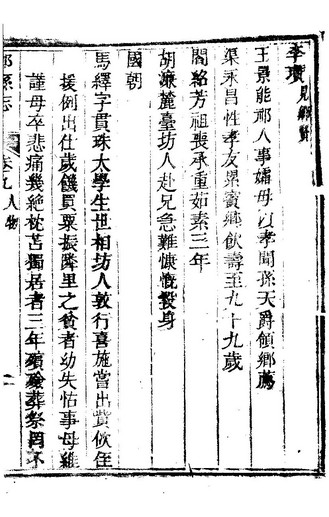 李瓚見鄉賢
王景能祁人事孀母以孝聞孫天爵領鄉薦
渠永昌性孝友累賓鄉飲壽至九十九歲
閻絡芳祖喪承重茹素三年
胡濂麓臺坊人赴兄急難慷慨殺身
國朝
馬繹字貫珠太學生世相坊人敦行喜施嘗出貲佽侄
援例出仕歲饑買粟振隣里之貧者幼失怙事母維
謹母卒悲痛幾絕枕苫獨居者三年殯殮葬祭罔不
祁縣志 卷九 人物